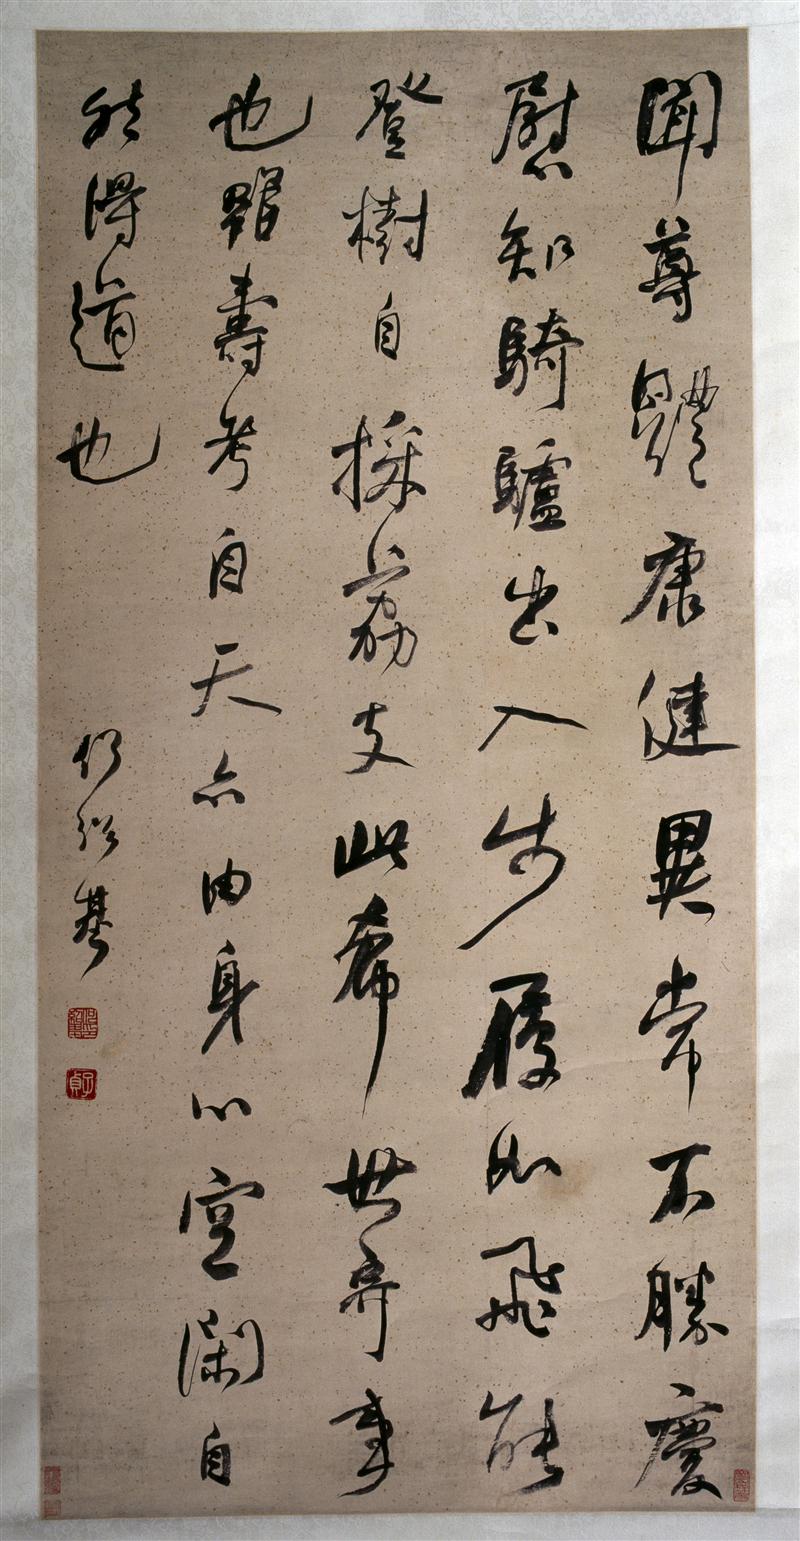 聞尊體康健異常不勝慶
慰知騎驢出入步履如飛能
登樹自採荔支此希世奇事
也雖壽考自天亦由身心空閑自
然得道也
何紹基
何紹基印
子貞